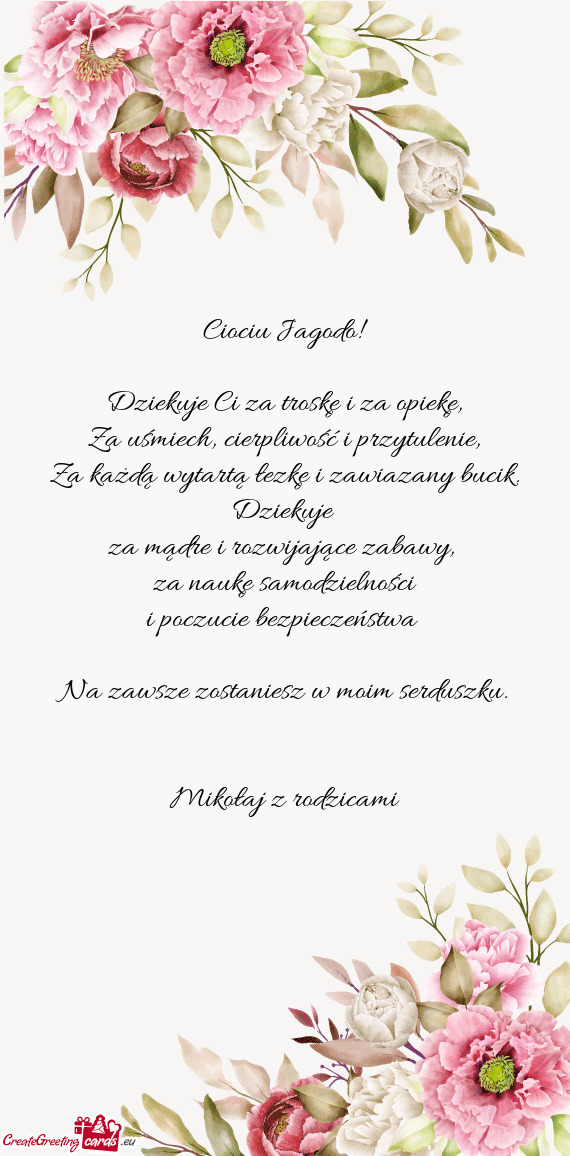 Ciociu Jagodo!
Dziekuje Ci za troskę i za opiekę,
Za uśmiech, cierpliwość i przytulenie,
Za każdą wytartą łezkę i zawiazany bucik.
Dziekuje
za mądre i rozwijające zabawy,
za naukę samodzielności
i poczucie bezpieczeństwa
Na zawsze zostaniesz w moim serduszku.
Mikołaj z rodzicami
CreateGreeting cards .eu